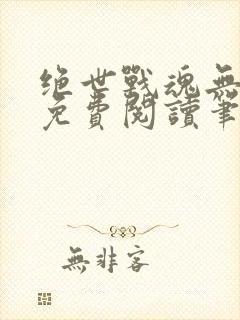 绝世戰魂無
免費閱讀筆
無非客